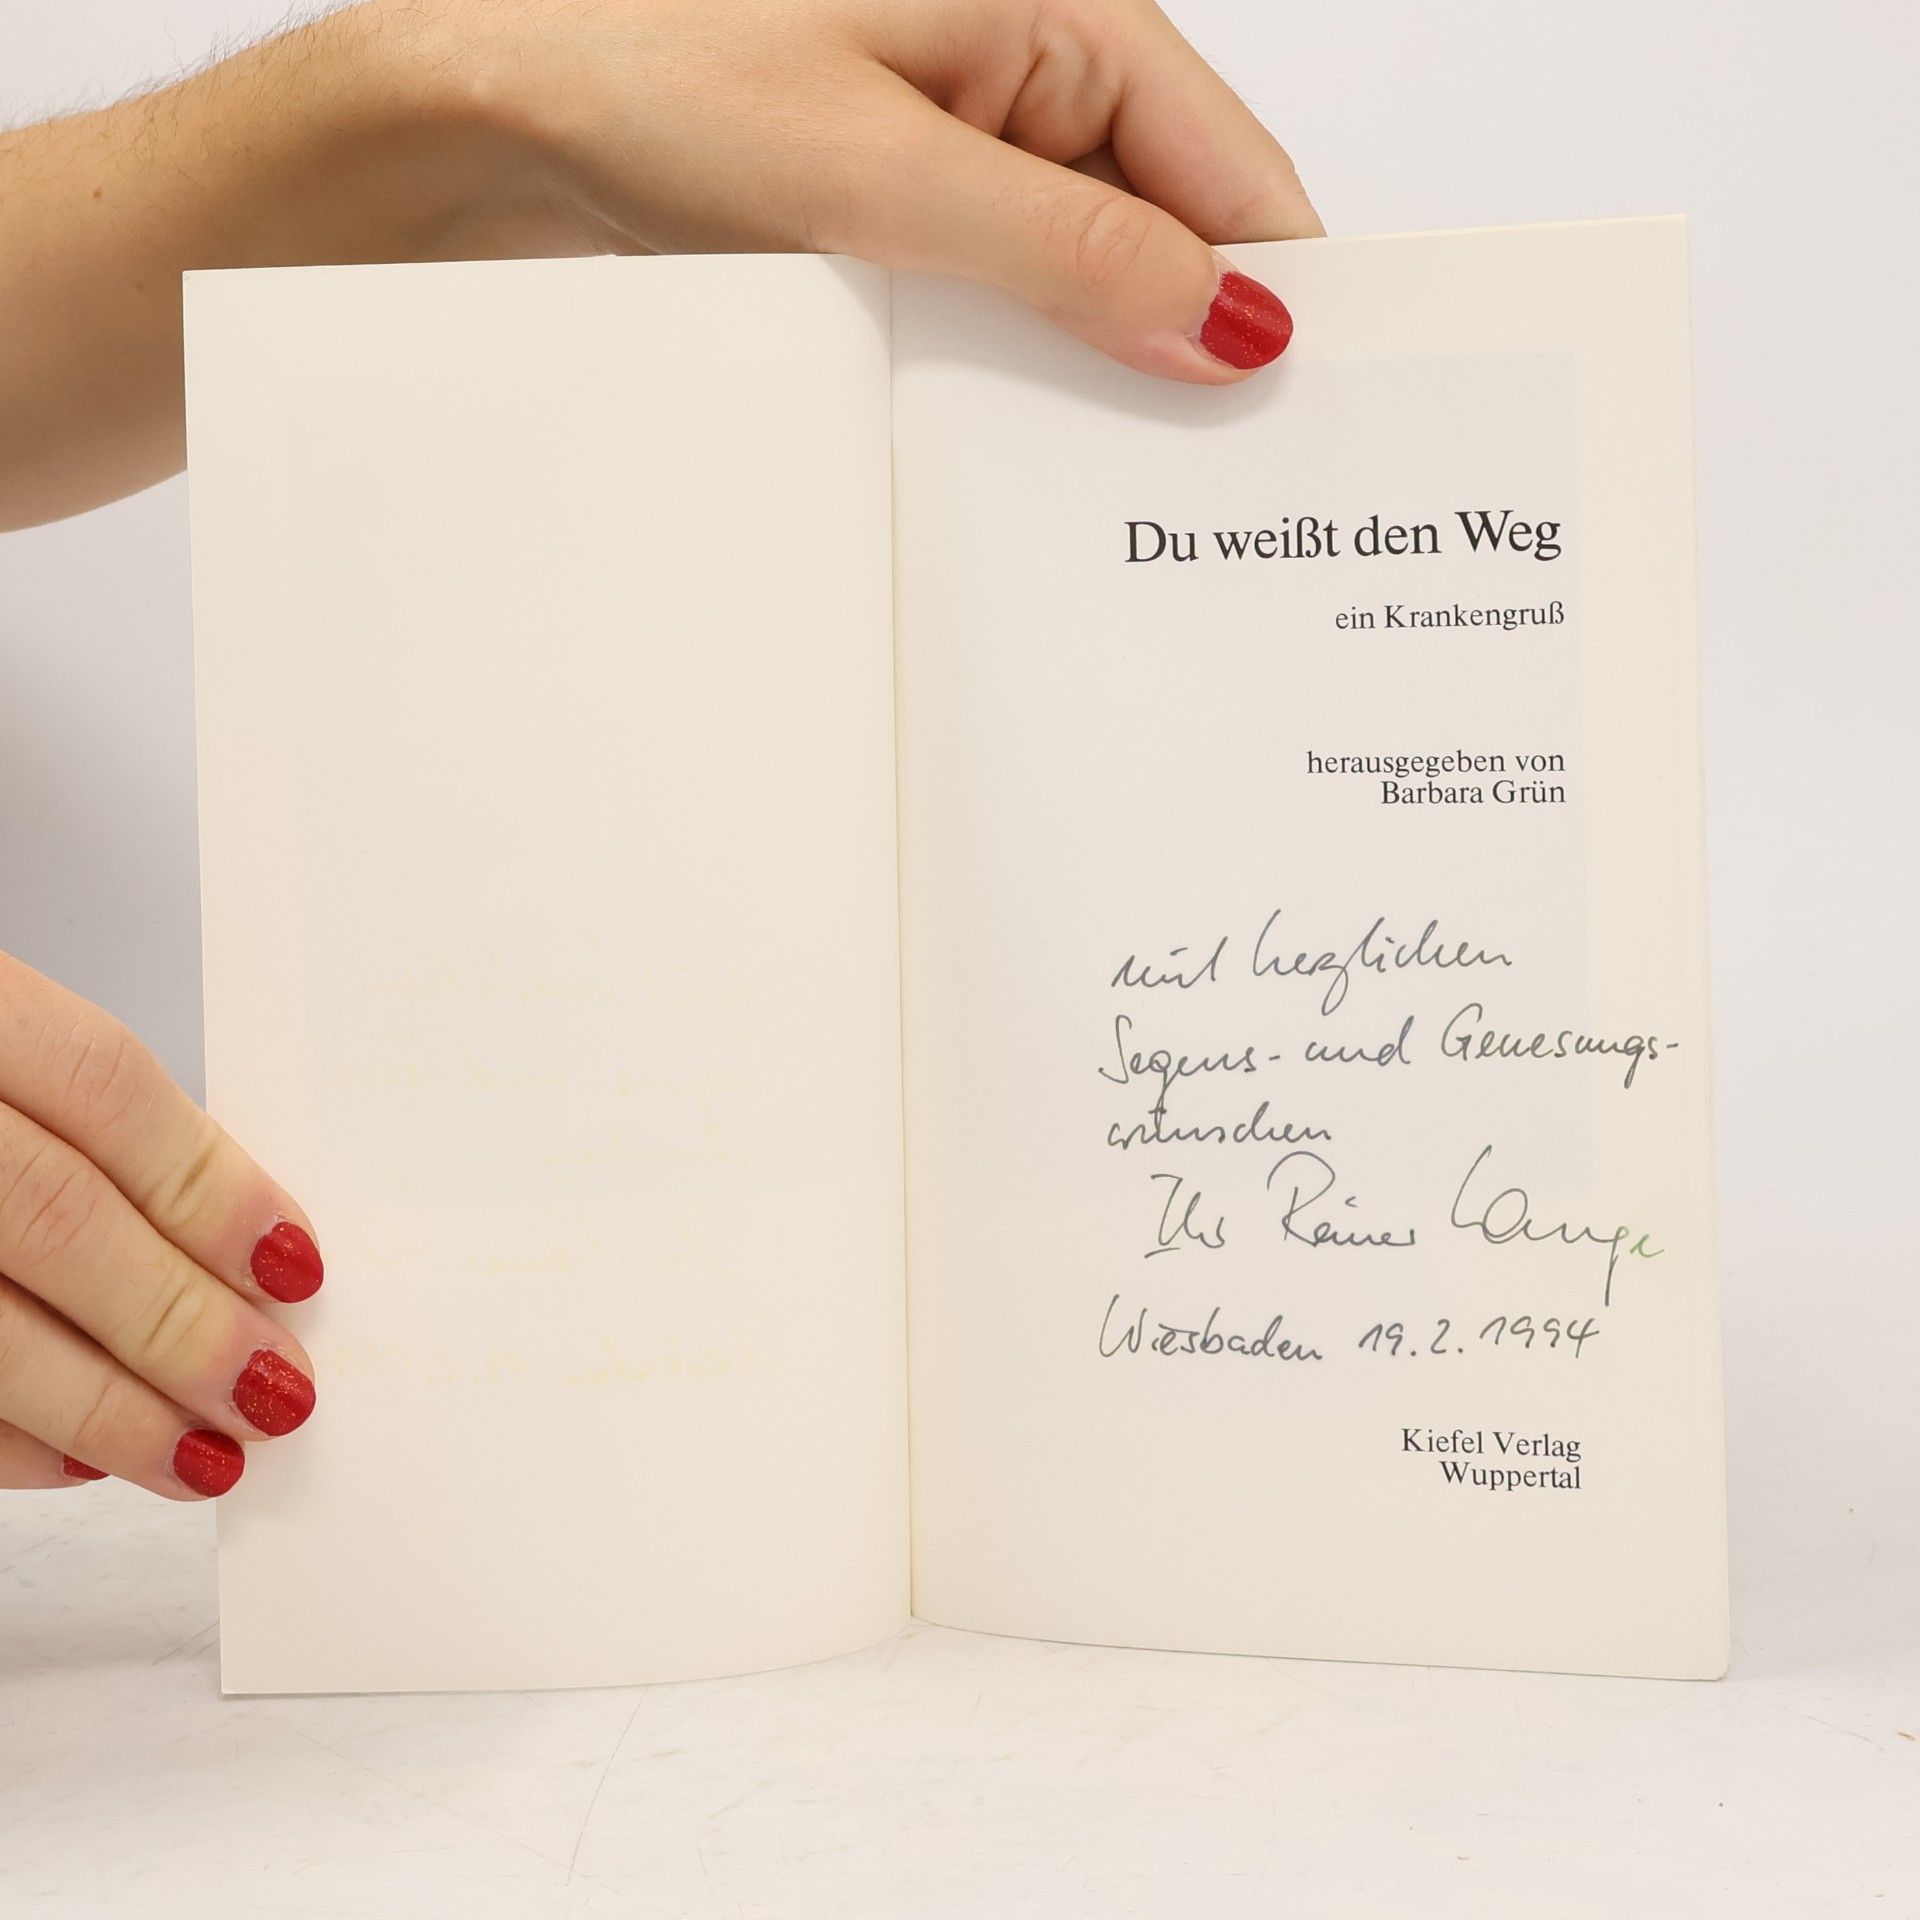 Du weißt den Weg
ein Krankengruß
herausgegeben von
Barbara Grün
mit herzlichen
Segens- und Genesungs-
wünschen
Ihr Reiner Lange
Wiesbaden 19.2.1994
Kiefel Verlag
Wuppertal